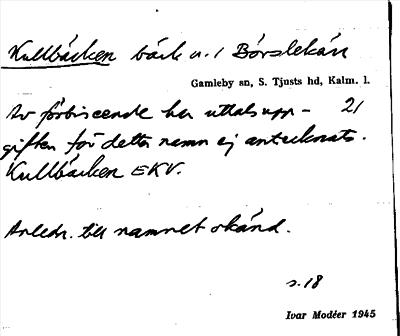 Kullbäcken bäck n. i Börslekån
Gamleby sn, S. Tjusts hd, Kalm. l.
Av förbiseende har uttalsupp- 21
giften för detta namn ej antecknats.
Kullbäcken EKV.
Anledn. till namnet okänd.
s. 18
Ivar Modéer 1945